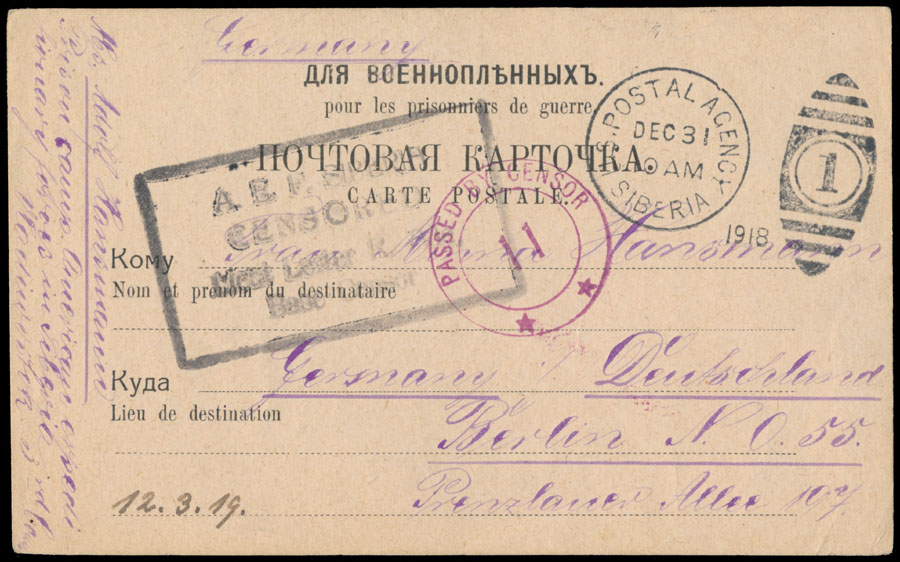 Germany
ДЛЯ ВОЕННОПЛѢННЫХЪ.
pour les prisonniers de guerre.
ПОЧТОВАЯ КАРТОЧКА.
CARTE POSTALE.
U.S. POSTAL AGENCY
DEC 31
AM
SIBERIA
1918
1
A.E.F. SIBERIA
CENSORED
Base Censor
PASSED BY CENSOR
11
Кому Frau Anna Hansmann
Nom et prénom du destinataire
Куда Germany / Deutschland
Lieu de destination
Berlin N. O. 55.
Prenzlauer Allee 107
12.3.19.
Adolf Hansmann
Prison American